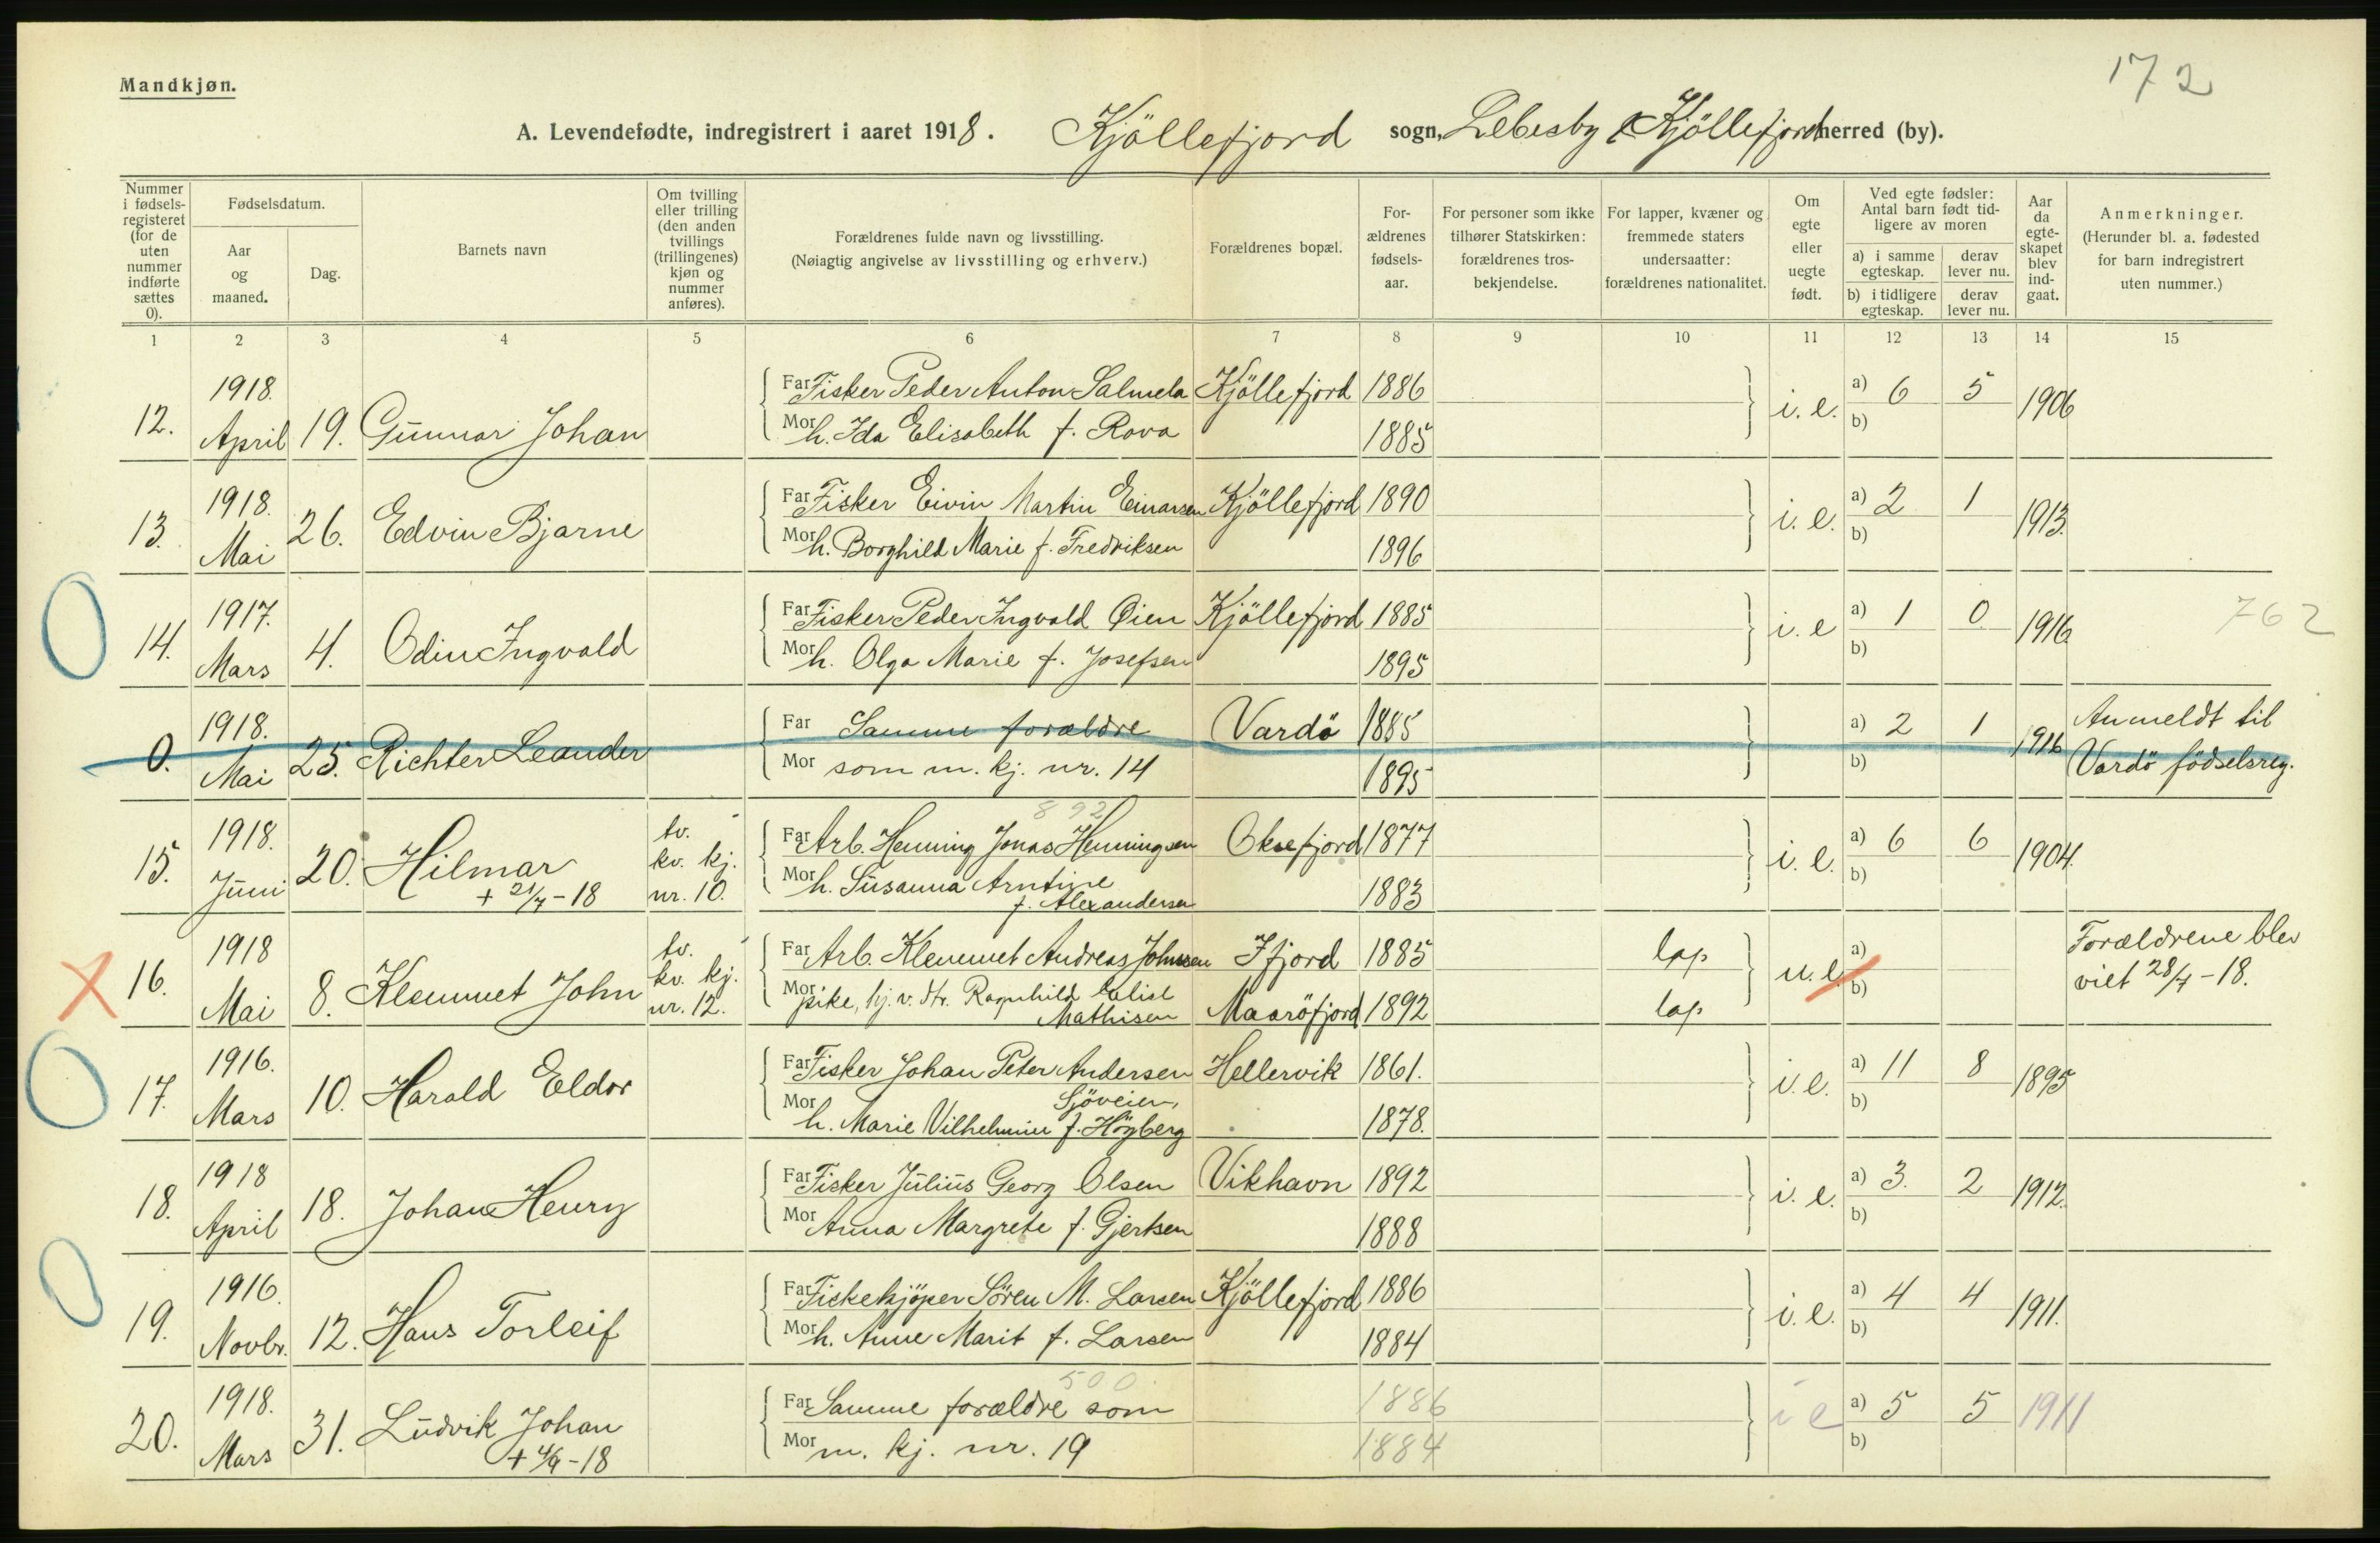 172
Mandkjøn.
A. Levendefødte, indregistrert i aaret 1918. Kjöllefjord sogn, Lebesby Kjöllefjord herred (by).
Nummer i fødsels-registeret (for de uten nummer indførte sættes 0).
Fødselsdatum.
Aar og maaned.
Dag.
Barnets navn
Om tvilling eller trilling (den anden tvillings (trillingenes) kjøn og nummer anføres).
Forældrenes fulde navn og livsstilling.
(Nøiagtig angivelse av livsstilling og erhverv.)
Forældrenes bopæl.
For-ældrenes fødsels-aar.
For personer som ikke tilhører Statskirken: forældrenes tros-bekjendelse.
For lapper, kvæner og fremmede staters undersaatter: forældrenes nationalitet.
Om egte eller uegte født.
Ved egte fødsler: Antal barn født tid-ligere av moren
a) i samme egteskap. derav lever nu.
b) i tidligere egteskap. derav lever nu.
Aar da egte-skapet blev ind-gaat.
Anmerkninger.
(Herunder bl. a. fødested for barn indregistrert uten nummer.)
1 2 3 4 5 6 7 8 9 10 11 12 13 14 15
12. 1918. April 19. Gunnar Johan
Far Fisker Peder Anton Salmela Kjöllefjord 1886 i. e. a) 6 5 1906
Mor h. Ida Elisabeth f. Rova 1885 b)
13. 1918. Mai 26. Edvin Bjarne
Far Fisker Eivin Martin Einarsen Kjöllefjord 1890 i. e. a) 2 1 1913.
Mor h. Borghild Marie f. Fredriksen 1896 b)
14. 1917. Mars 4. Odin Ingvald
Far Fisker Peder Ingvald Öien Kjöllefjord 1885 i. e a) 1 0 1916 762
Mor h. Olga Marie f. Josefsen 1895 b)
0. 1918. Mai 25. Richter Leander
Far Samme forældre Vardö 1885 a) 2 1 1916 Anmeldt til
Mor som m. kj. nr. 14 1895 b) Vardö födselsreg.
892
15. 1918. Juni 20. Hilmar + 21/7-18 tv. kv. kj. nr. 10.
Far Arb. Henning Jonas Henningsen Oksefjord 1877 i. e. a) 6 6 1904.
Mor h. Susanna Arntine f. Alexandersen 1883 b)
16. 1918 Mai 8. Klemmet John tv. kv. kj. nr. 12.
Far Arb. Klemmet Andreas Johnsen Ifjord 1885 lap u. e. a) Forældrene blev
Mor pike, hj. v. str. Ragnhild Elise Mathisen Maaröfjord 1892 lap b) viet 28/7-18.
17. 1916. Mars 10. Harald Eldor
Far Fisker Johan Peter Andersen Hellervik 1861. i. e. a) 11 8 1895
Sjöveien,
Mor h. Marie Vilhelmine f. Högberg 1878. b)
18. 1918 April 18. Johan Henry
Far Fisker Julius Georg Olsen Vikhavn 1892 i. e. a) 3. 2 1912.
Mor Anna Margrete f. Gjertsen 1888 b)
19. 1916. Novbr. 12. Hans Torleif
Far Fiskekjöper Sören M. Larsen Kjöllefjord 1886 i. e. a) 4 4 1911.
Mor h. Anne Marit f. Larsen 1884 b)
500
20. 1918. Mars 31. Ludvik Johan + 4/9-18
Far Samme forældre som 1886 i e a) 5 5 1911
Mor m. kj. nr. 19 1884 b)